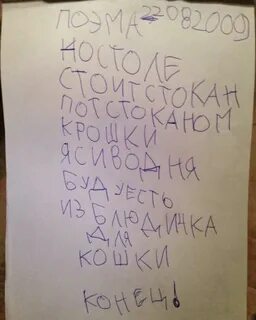 ПОЭМА 22082009
НОСТОЛЕ
СТОИТСТОКАН
ПОТСТОКАНОМ
КРОШКИ
ЯСИВОДНЯ
БУДУЕСТЬ
ИЗБЛЮДИЧКА
ДЛЯ
КОШКИ
КОНЕЦ!